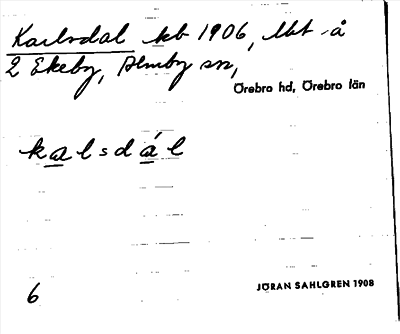 Karlsdal kb 1906, lht å
2 Ekeby, Almby sn,
Örebro hd, Örebro län
kalsdál
6 JÖRAN SAHLGREN 1908